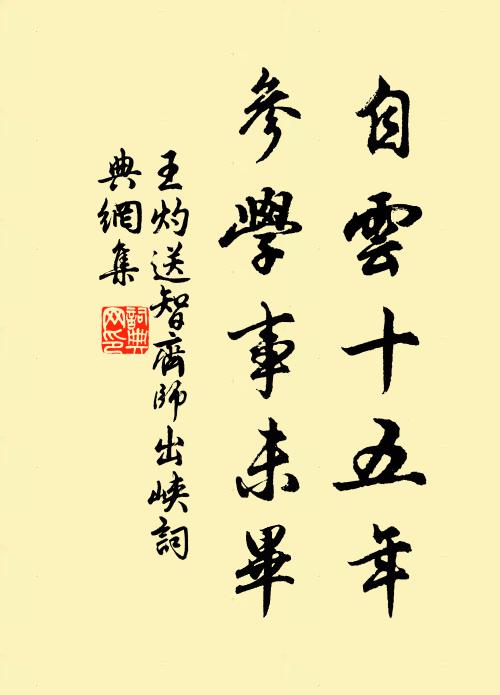 自雲十五年
參學事未畢
王灼送智齊師出峽詞
典網集
詞典网印